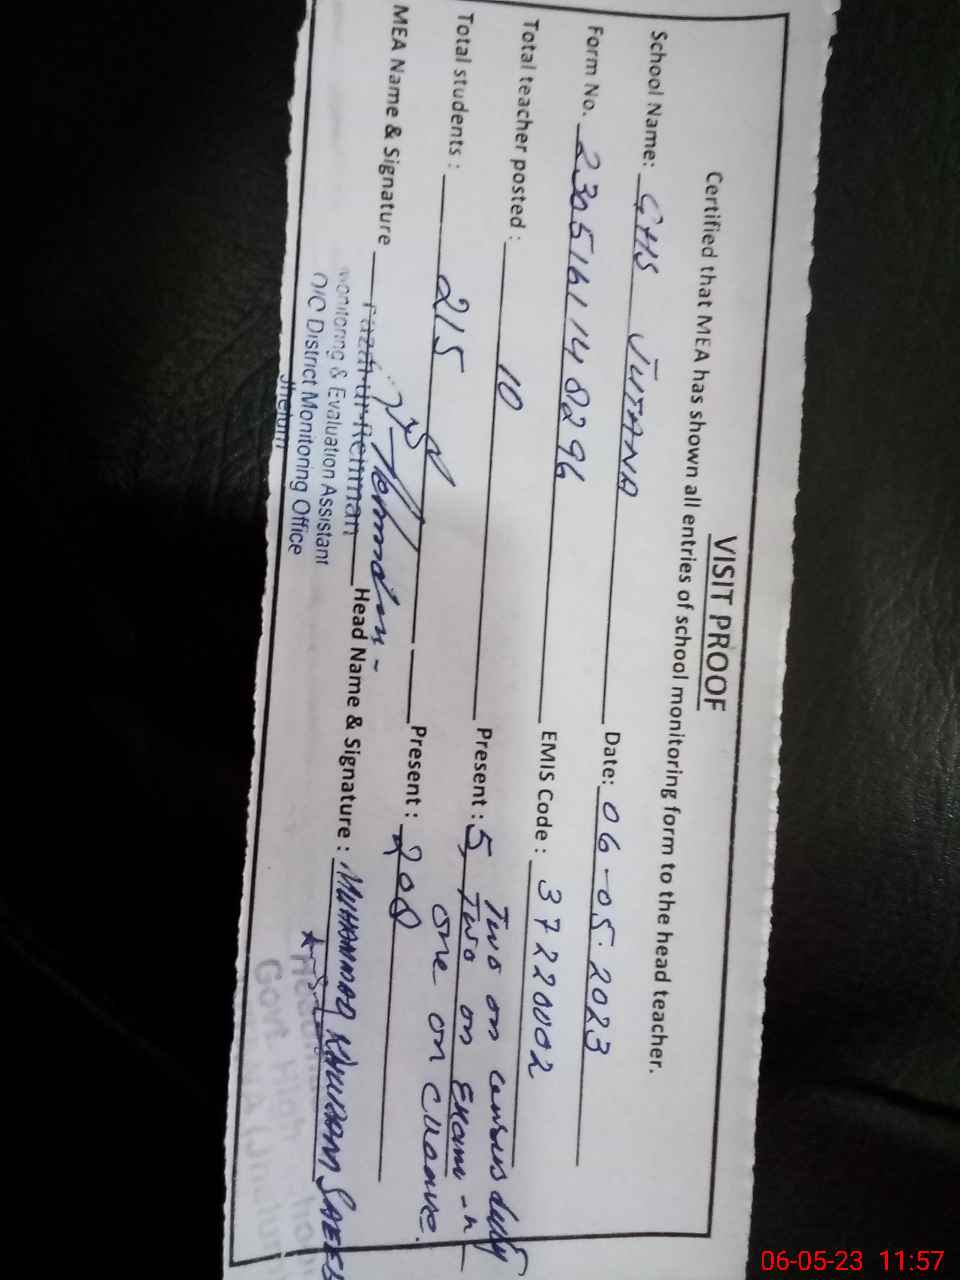 VISIT PROOF
Certified that MEA has shown all entries of school monitoring form to the head teacher.
School Name: GHS JUTANA Date: 06-05-2023
Form No. 2305161148296 EMIS Code : 37220002
Total teacher posted : 10 Present : 5, Two on census duty
Two on Exam -
one on
Total students : 215 Present : 208
MEA Name & Signature Fazal-ur-Rehman Head Name & Signature : MUHAMMAD KHURRAM SAEED
Monitoring & Evaluation Assistant
O/O District Monitoring Office
Jhelum
Govt. High
06-05-23 11:57